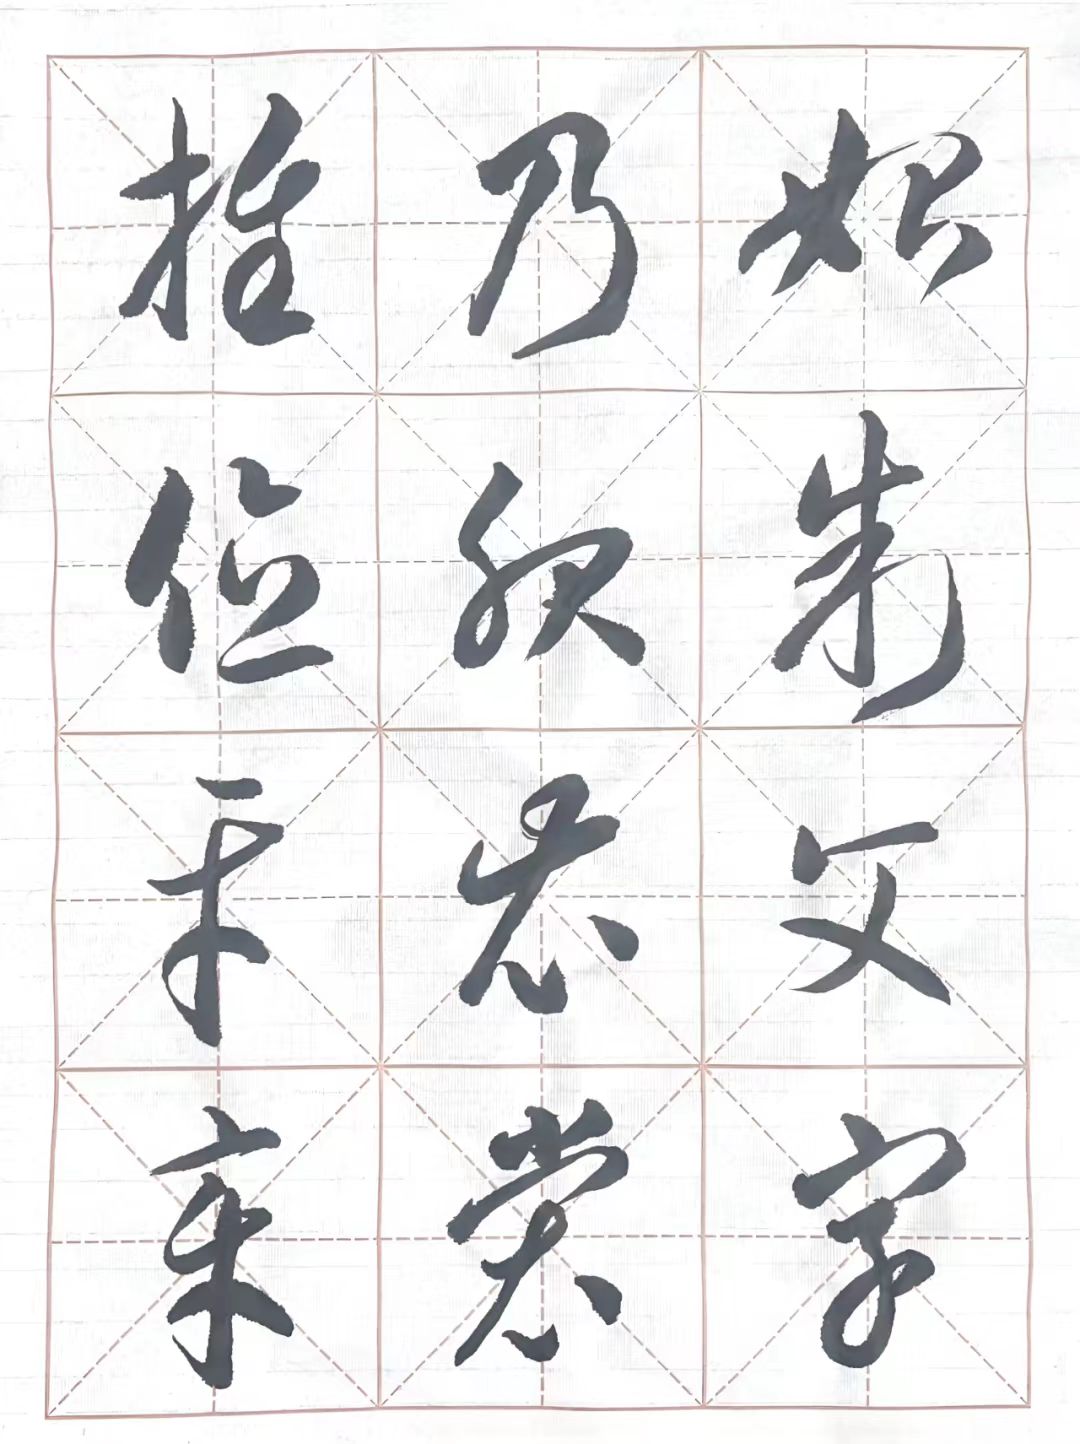 始制文字
乃服衣裳
推位